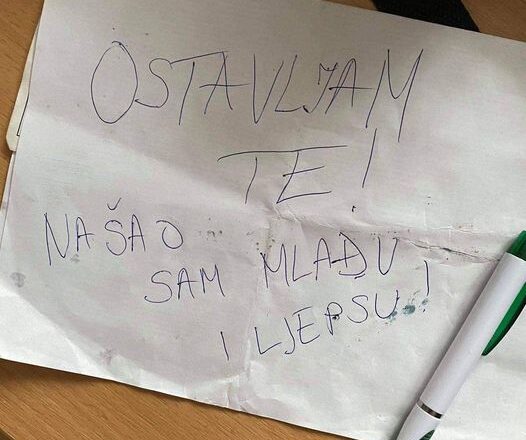 OSTAVLJAM
TE!
NAŠAO
SAM MLAĐU
I LJEPSU!